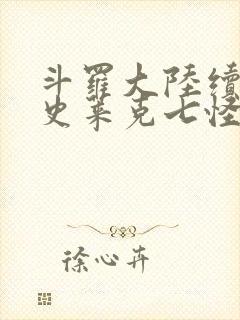 斗羅大陸續
史莱克七怪
徐心卉